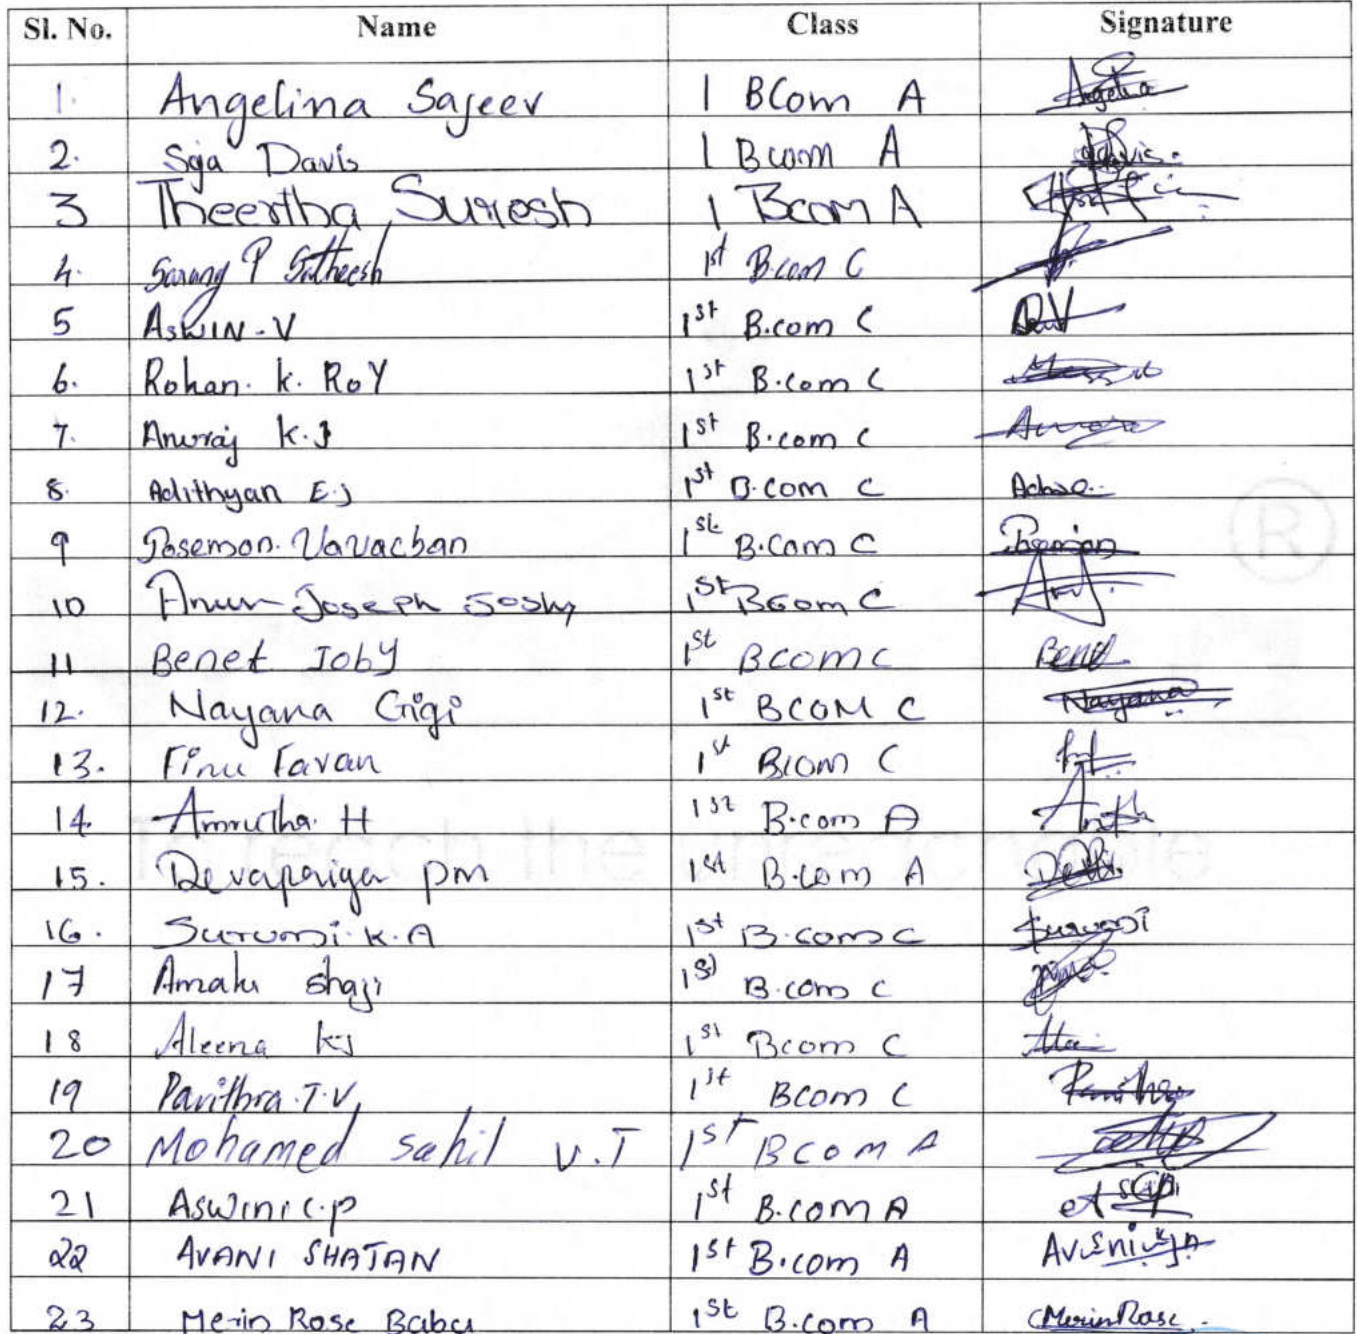 Sl. No. Name Class Signature
1. Angelina Sajeev 1 BCom A
2. Sja Davis 1 Bcom A
3 Theertha Suresh 1 Bcom A
4. Sarang P Satheesh 1st B.com C
5 ASWIN-V 1st B.com C
6. Rohan. K. RoY 1st B.com C
7. Anuraj K.J 1st B.com C Anuraj
8. Adithyan E.J 1st B.com C
9 Josemon. Vavachan 1st B.Com C Josemon
10 Joseph Joshy 1st BCom C
11 Benet Joby 1st Bcom C Benet
12. Nayana Gigi 1st BCOM C Nayana
13. Finu Favan 1st BCom C
14 Amrutha H 1st B.com A
15. Devapriya pm 1st B.com A
16. Surumi.K.A 1st B.com C Surumi
17 Amalu Shaji 1st B.com C
18 Aleena KJ 1st Bcom C
19 Pavithra.T.V 1st Bcom C Pavithra
20 Mohamed Sahil V.T 1st BCom A
21 Aswini C.P 1st B.com A
22 AVANI SHAJAN 1st B.com A
23 Merin Rose Babu 1st B.com A Merin Rose
To teach the unteachable
®